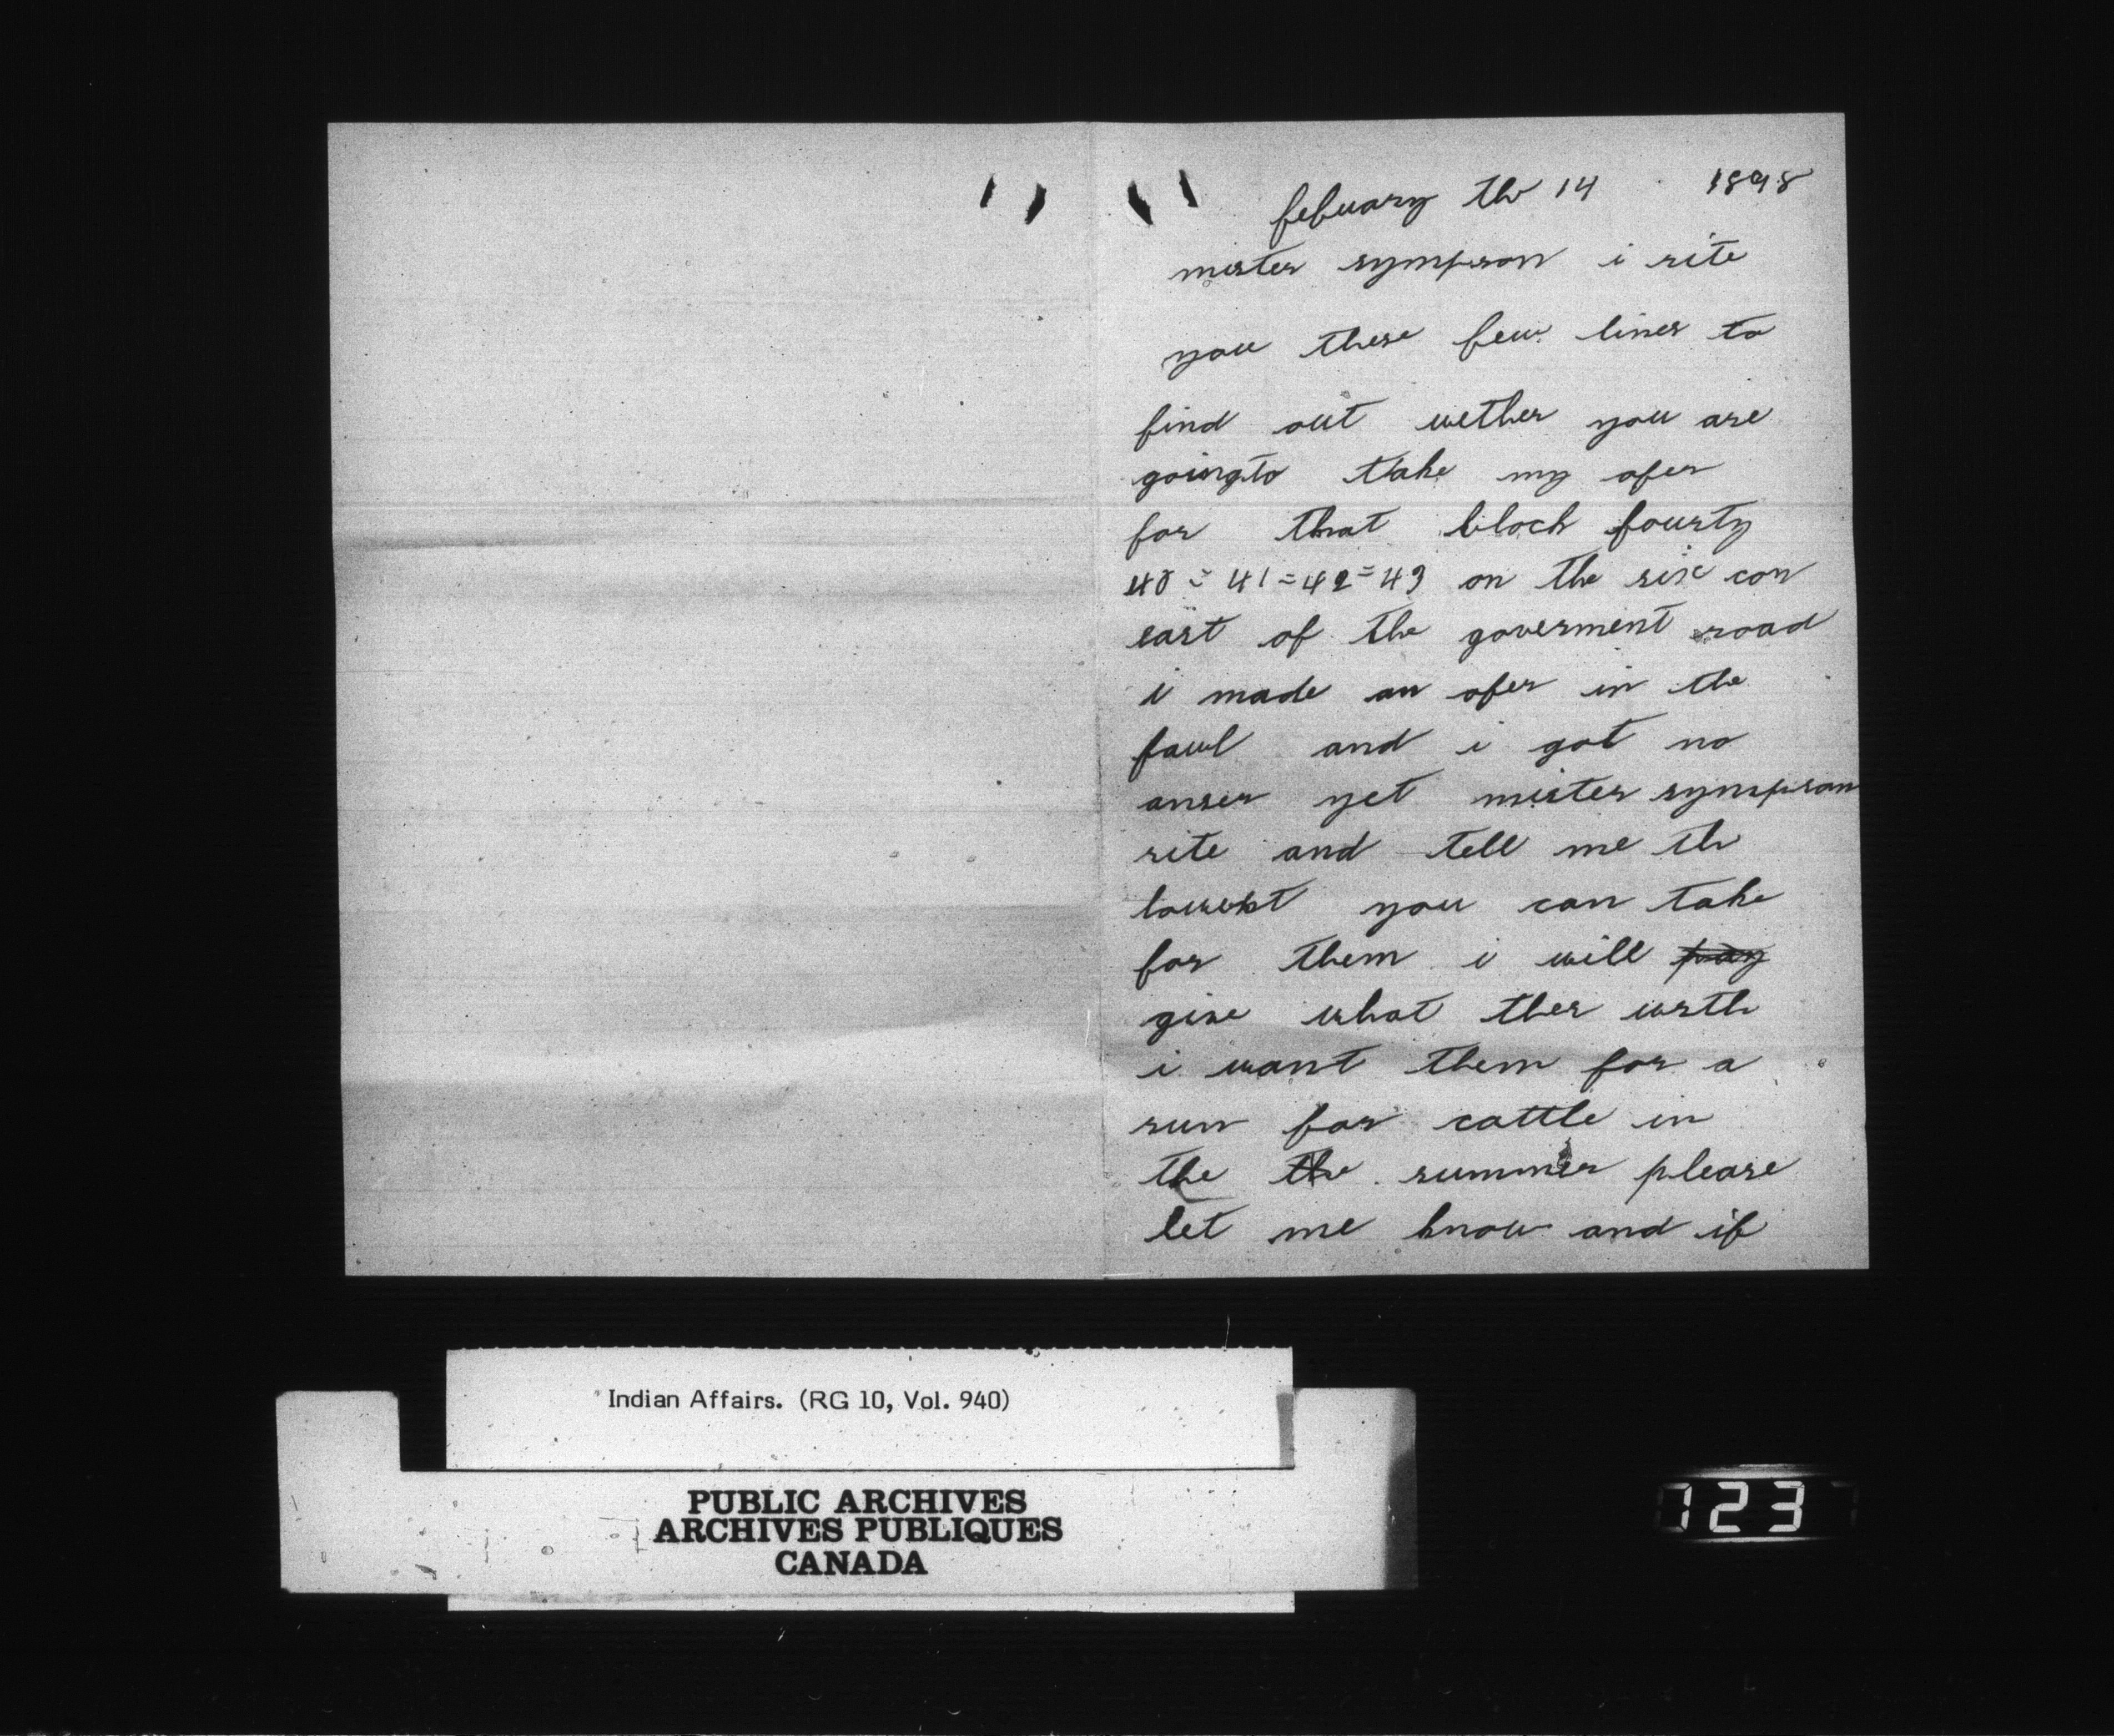 febuary the 14 1898
mister sympson i rite
you these few lines to
find out wether you are
going to take my ofer
for that block fourty
40 = 41 = 42 = 43 on the six con
east of the goverment road
i made an ofer in the
fawl and i got no
anser yet mister sympson
rite and tell me the
lowest you can take
for them i will pay
give what ther wrth
i want them for a
run for cattle in
the the summer please
let me know and if
Indian Affairs. (RG 10, Vol. 940)
PUBLIC ARCHIVES
ARCHIVES PUBLIQUES
CANADA
1237